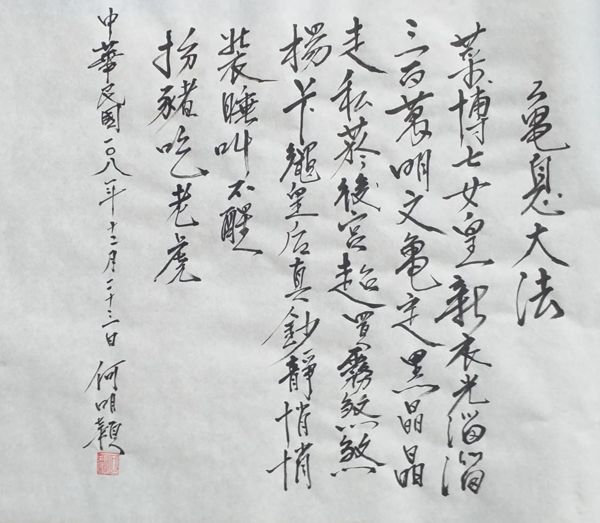 龜息大法
菜博士女皇新衣光溜溜
三百萬明文龜定黑晶晶
走私菸後宮超買霧煞煞
楊卡繩皇后真鈔靜悄悄
裝睡叫不醒
扮豬吃老虎
中華民國一〇八年十二月二十三日 何明穎